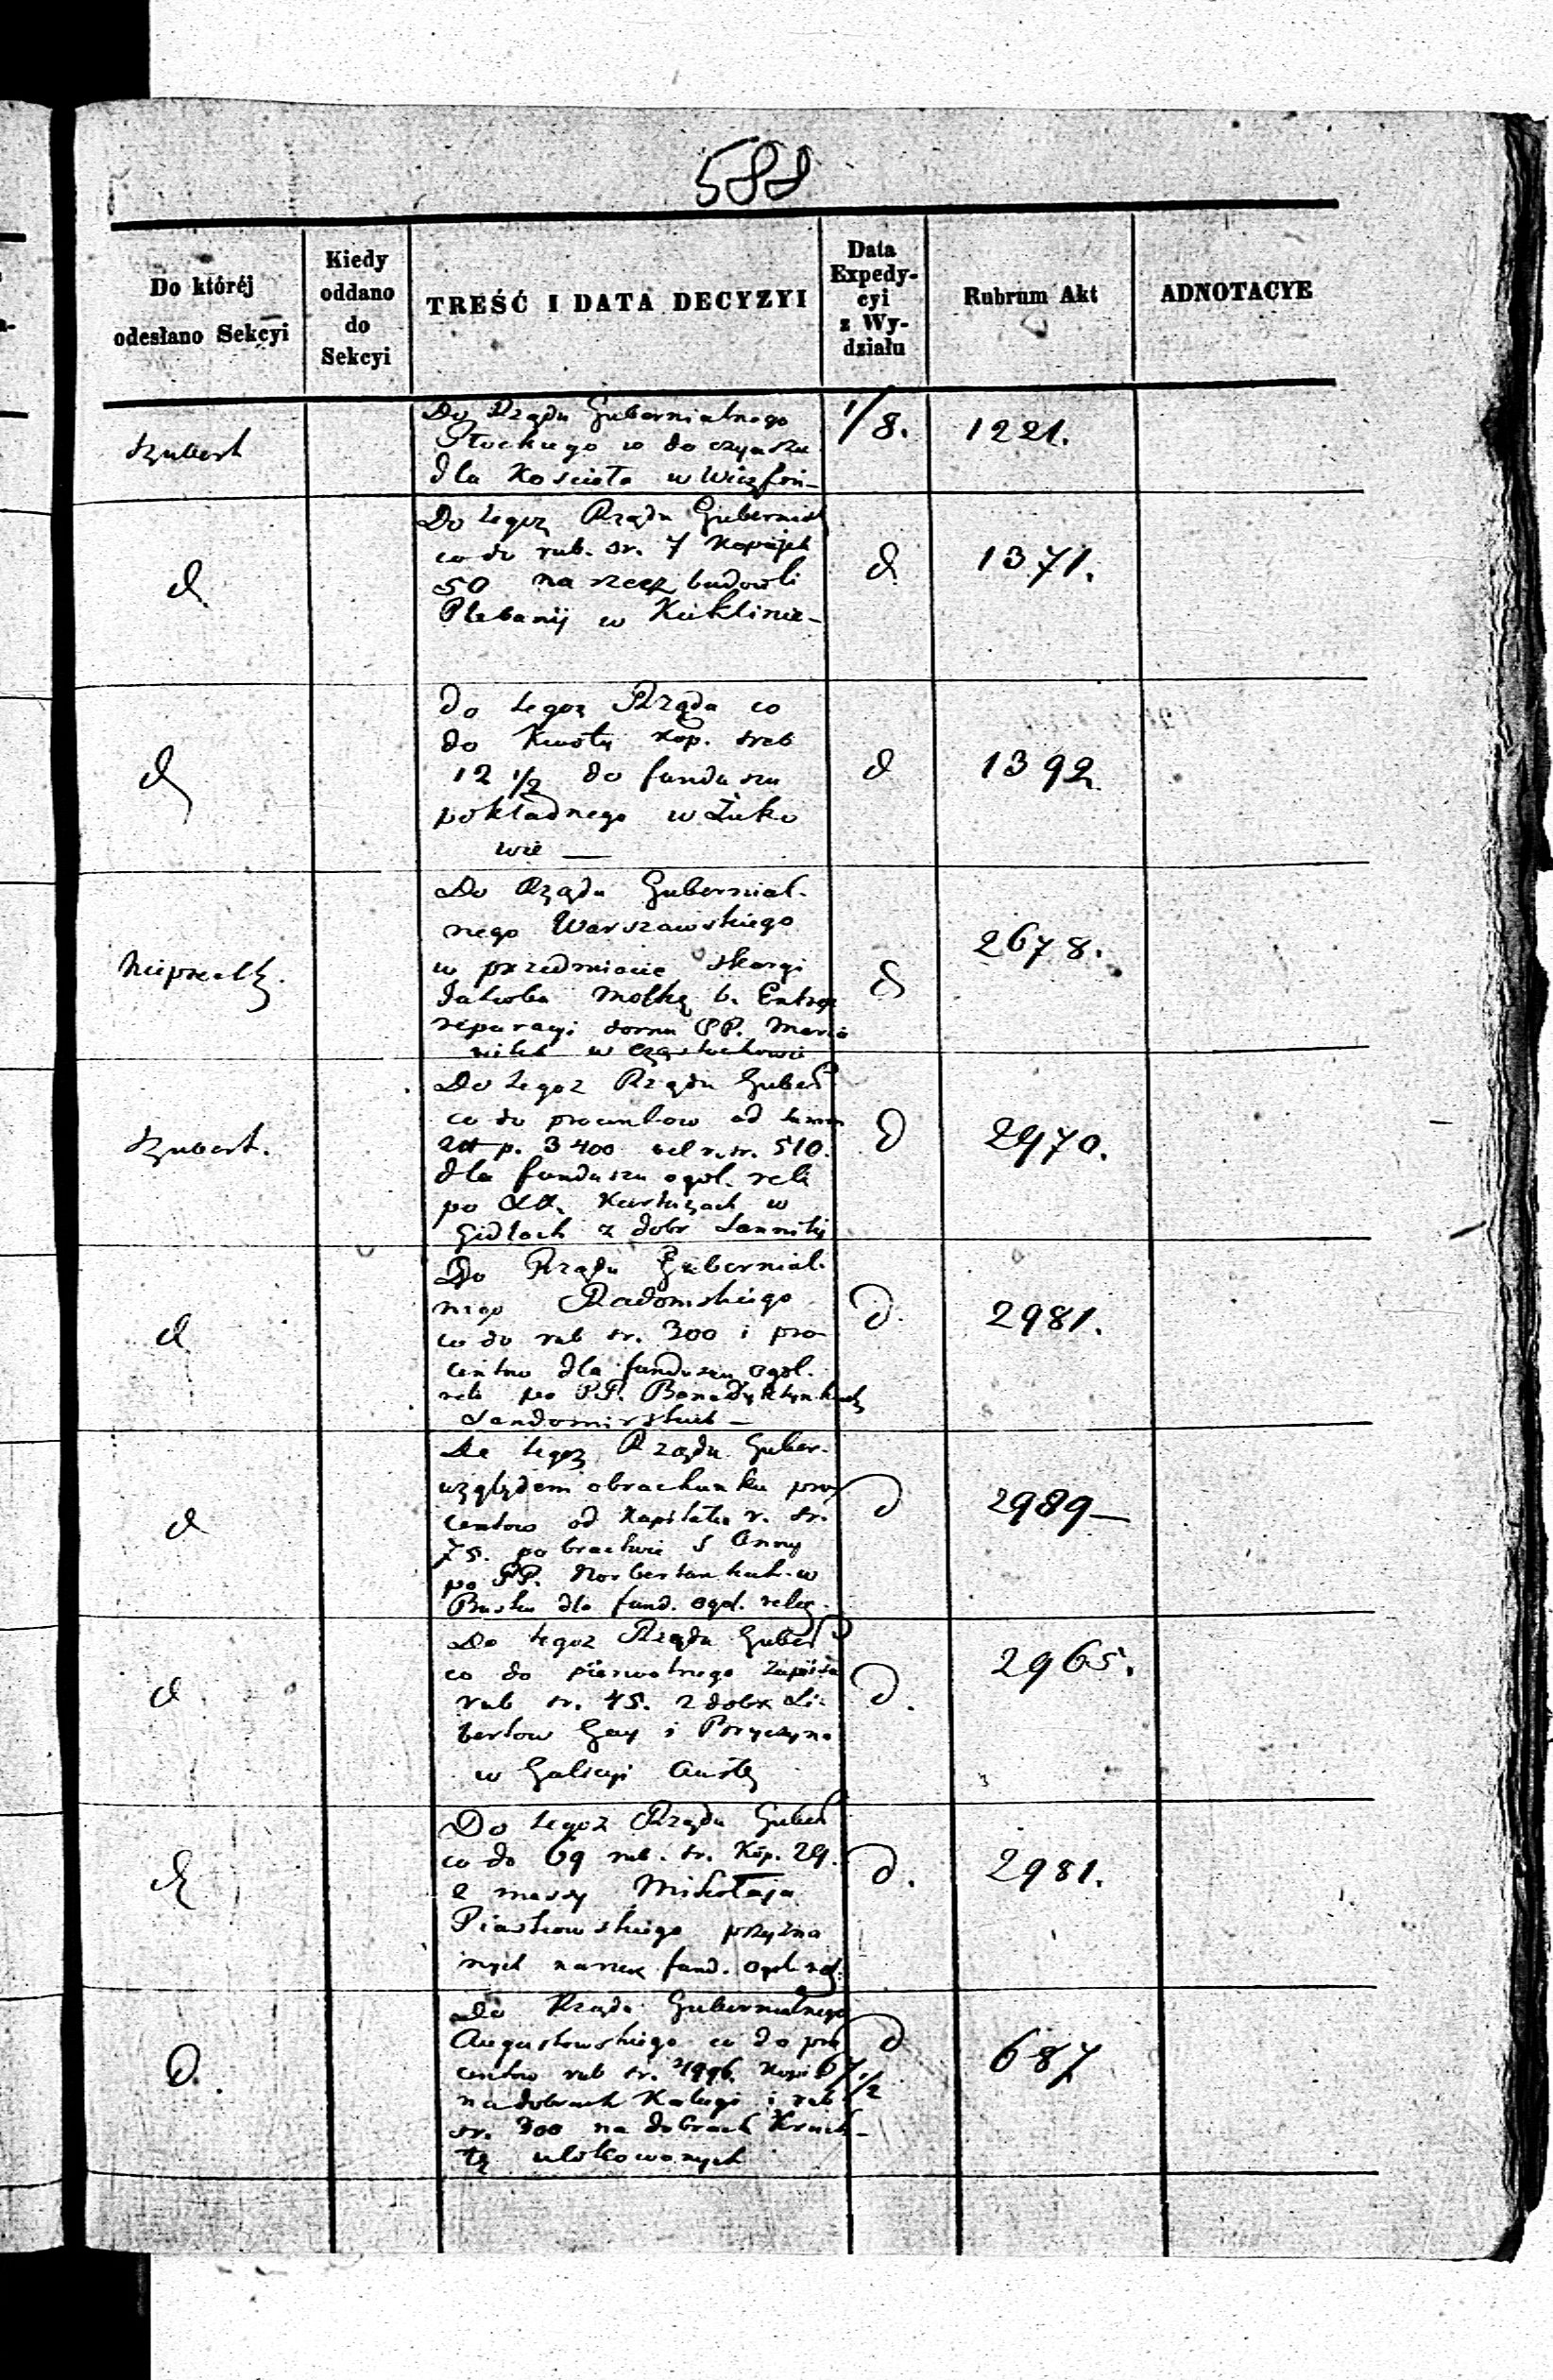 588
Do któréj
odesłano Sekcyi
Kiedy
oddano
do
Sekcyi
TREŚĆ I DATA DECYZYI
Data
Expedy-
cyi
z Wy-
działu
Rubrum Akt
ADNOTACYE
Szubert
Do Rządu Gubernialnego
Płockiego co do czynszu
dla Kościoła w
1/8.
1221.
d
Do tegoż Rządu Gubernial
co do rub. sr. 7 Kopijek
50 na rzecz budowli
Plebanij w Kuklinie-
d
1371.
d
do tegoż Rządu co
do Kwoty kop. sreb
12 1/2 do funduszu
pokładnego w Żuko
wie —
d
1392
Do Rządu Gubernial-
nego Warszawskiego
w przedmiocie skargi
Jakóba b.
reparacyi domu PP. Maria
witek w Częstochowie
d
2678.
Szubert.
Do tegoż Rządu Guber
co do procentow od summ
złt p. 3400 vel r. sr. 510.
dla funduszu ogól. reli
po XX. Kartuzach w
Gidlach z dobr
d
2970.
d
Do Rządu Gubernial-
nego Radomskiego
co do rub sr. 300 i pro-
centow dla funduszu ogól.
reli po PP. Benedyktynkach
Sandomirskich —
d.
2981.
d
Do tegoż Rządu Guber-
względem obrachunku pro
centow od Kapitału r. sr.
75. po bractwie S Anny
po PP. Norbertankach w
Busku dla fund. ogol. relig.
d
2989—
d
Do tegoż Rządu Guber
co do pierwotnego Zapisu
rub sr. 45. z dobr Li-
bertow Gay i
w Galicyi Austr
d.
2965.
d
Do tegoż Rządu Guber
co do 69 rub. sr. Kop. 29.
z massy Mikołaja
Piaskowskiego przyzna
nych na rzecz fund. ogol. rel.
d.
2981.
d.
Do Rządu Gubernialnego
Augustowskiego co do pro
centow rub sr. Kopi 67 1/2
na dobrach i rub
sr. 300 na dobrach
ulokowanych
d
687